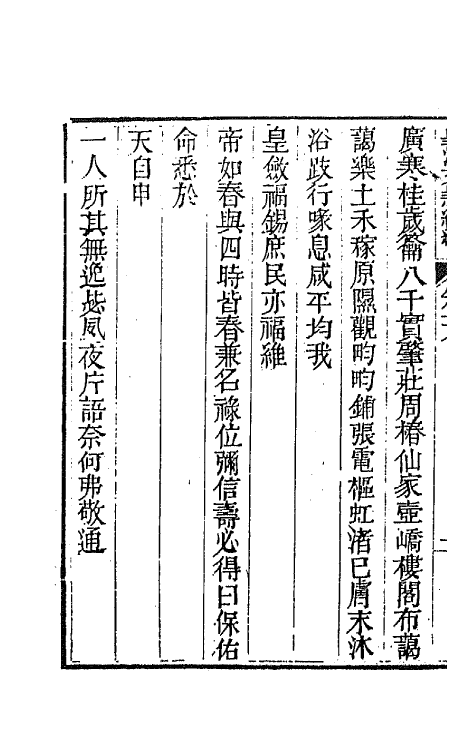 廣寒桂歲籥八千實肇莊周椿仙家壺嶠樓閣布藹
藹樂土禾稼原隰觀畇畇鋪張電樞虹渚巳膚末沐
浴跂行喙息咸平均我
皇斂福錫庶民亦福維
帝如春與四時皆春兼名祿位彌信壽必得曰保佑
命悉於
天自申
一人所其無逸玆夙夜片語奈何弗敬通